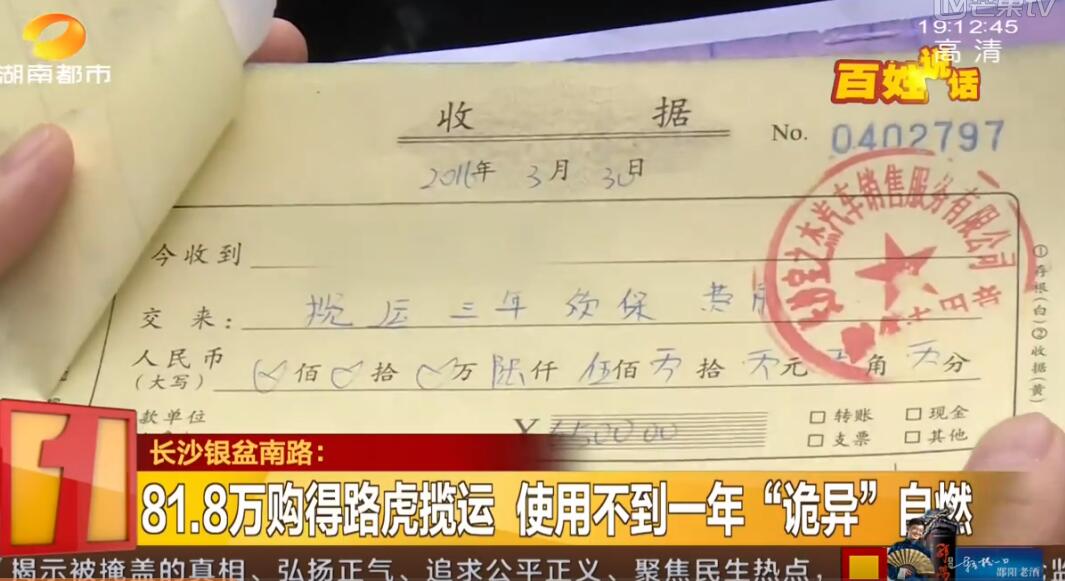 芒果TV
19:12:45
高清
湖南都市
百姓说话
收 据
No. 0402797
2016年 3月 30日
今收到
交 来: 揽运三年 保 费用
人民币
(大写) 佰 拾 万 陆仟 伍佰 拾 元 角 分
款单位
¥ 6500.00
□ 转账 □ 现金
□ 支票 □ 其他
之杰汽车销售服务有限公司
①存根(白)②收据(黄)
长沙银盆南路:
81.8万购得路虎揽运 使用不到一年“诡异”自燃
揭示被掩盖的真相、弘扬正气、追求公平正义、聚焦民生热点,
邵阳老酒